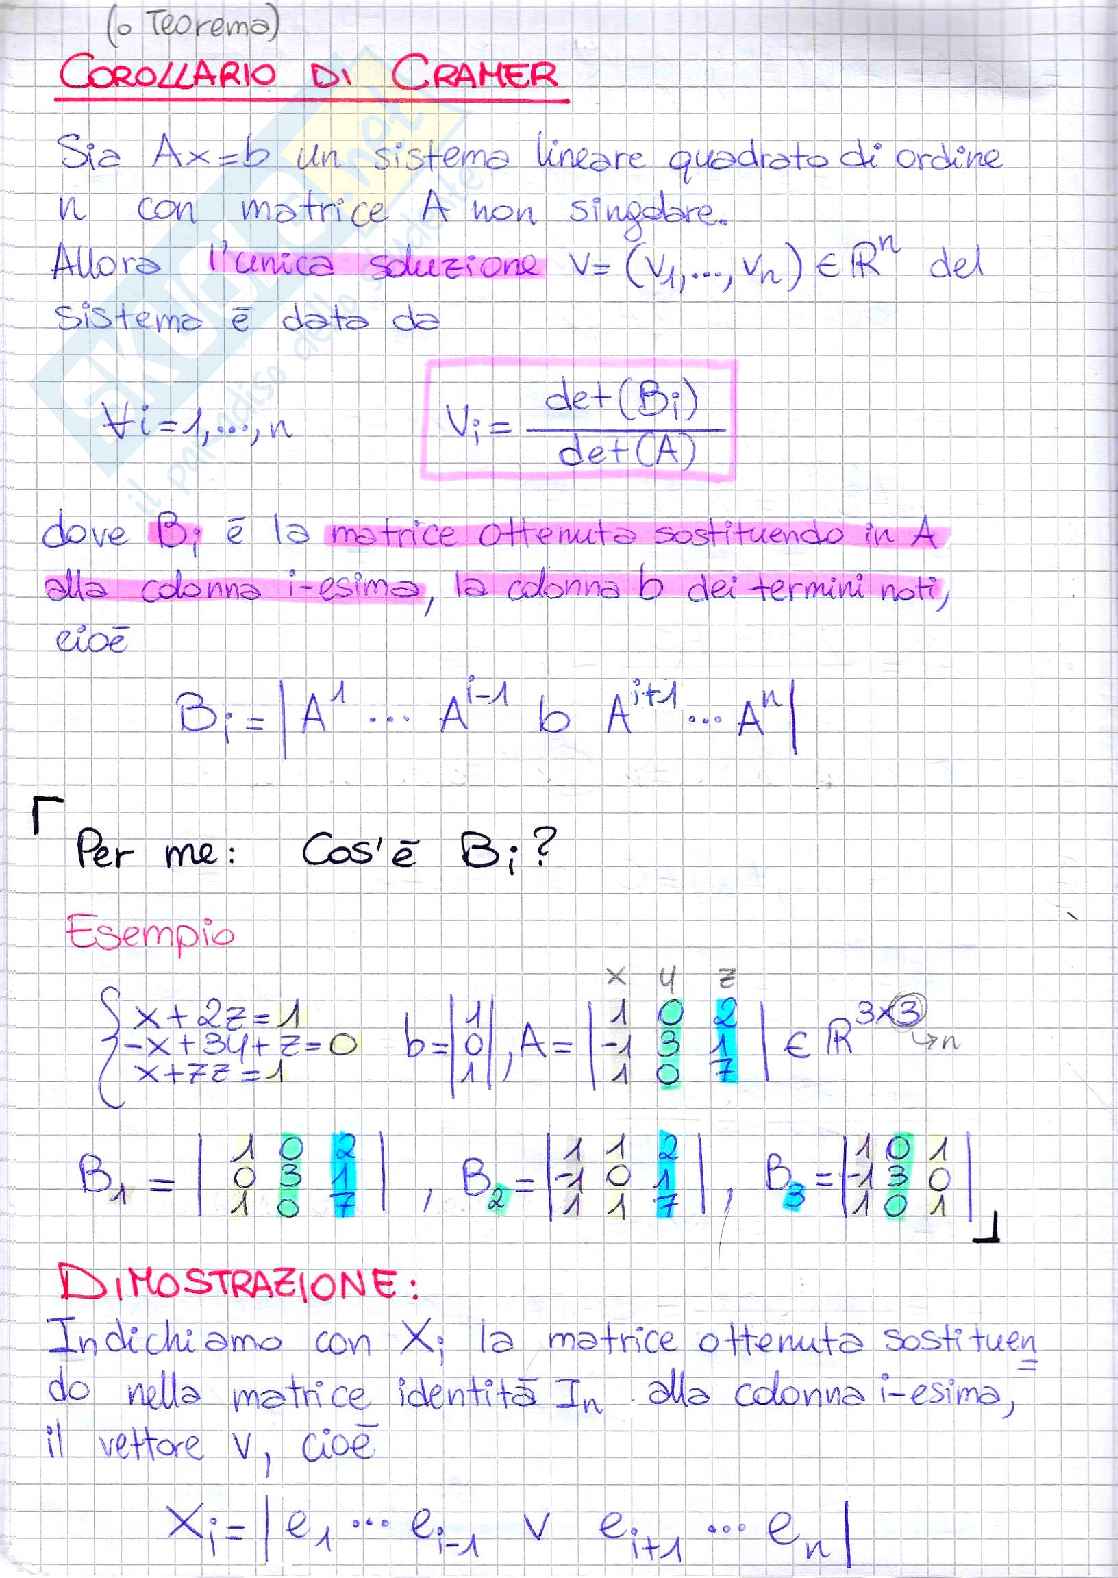 (o Teorema)
COROLLARIO DI CRAMER
Sia Ax=b un sistema lineare quadrato di ordine
n con matrice A non singolare.
Allora l'unica soluzione v=(v₁,...,vₙ)∈ℝⁿ del
sistema ē data da
∀i=1,...,n vᵢ= det(Bᵢ)/det(A)
dove Bᵢ ē la matrice ottenuta sostituendo in A
alla colonna i-esima, la colonna b dei termini noti,
cioē
Bᵢ=|A¹ ... Aⁱ⁻¹ b Aⁱ⁺¹ ... Aⁿ|
Per me: Cos'ē Bᵢ?
Esempio
x y z
{ x+2z=1 b=|1| , A=| 1 0 2 | ∈ ℝ³ˣ³ → n
-x+3y+z=0 |0| | -1 3 1 |
x+7z=1 |1| | 1 0 7 |
B₁ = | 1 0 2 | , B₂=| 1 1 2 | , B₃=| 1 0 1 |
| 0 3 1 | | -1 0 1 | | -1 3 0 |
| 1 0 7 | | 1 1 7 | | 1 0 1 |
DIMOSTRAZIONE:
Indichiamo con Xᵢ la matrice ottenuta sostituen=
do nella matrice identitā Iₙ alla colonna i-esima,
il vettore v, cioē
Xᵢ=|e₁ ... eᵢ₋₁ v eᵢ₊₁ ... eₙ|
SKUOLA.net
il paradiso dello studente